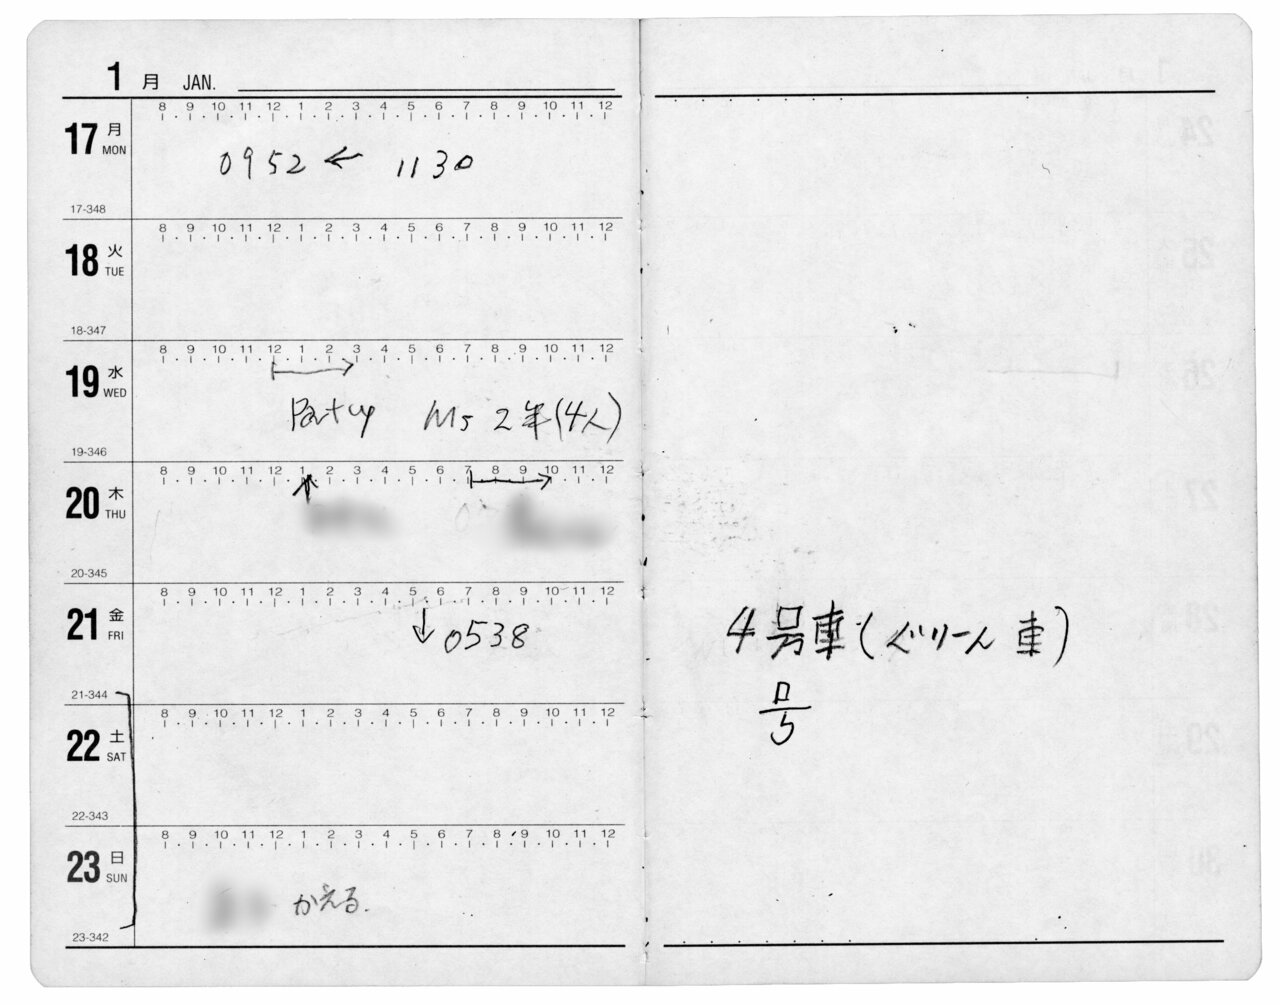 1月 JAN.
8 9 10 11 12 1 2 3 4 5 6 7 8 9 10 11 12
17 月 MON
0952 ← 1130
17-348
8 9 10 11 12 1 2 3 4 5 6 7 8 9 10 11 12
18 火 TUE
18-347
8 9 10 11 12 1 2 3 4 5 6 7 8 9 10 11 12
19 水 WED
Part up M5 2年(4人)
19-346
8 9 10 11 12 1 2 3 4 5 6 7 8 9 10 11 12
20 木 THU
20-345
8 9 10 11 12 1 2 3 4 5 6 7 8 9 10 11 12
21 金 FRI
↓0538
21-344
8 9 10 11 12 1 2 3 4 5 6 7 8 9 10 11 12
22 土 SAT
22-343
8 9 10 11 12 1 2 3 4 5 6 7 8 9 10 11 12
23 日 SUN
かえる.
23-342
4号車(ぐりーん車)
号